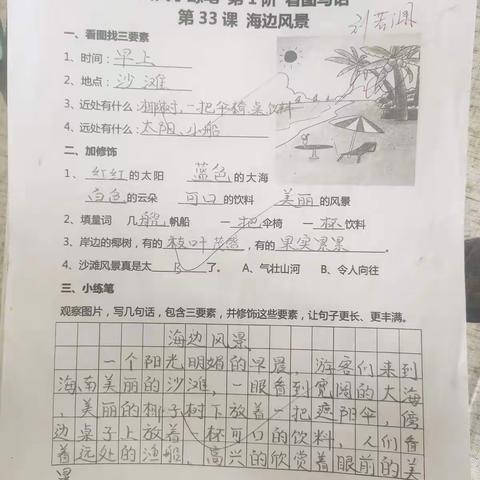 第1阶 看图写话
第 33 课 海边风景
一、看图找三要素
1、时间：早上
2、地点：沙滩
3、近处有什么：椰树，一把伞椅、桌饮料
4、远处有什么：太阳、小船
二、加修饰
1、红红的太阳 蓝色的大海
白色的云朵 可口的饮料 美丽的风景
2、填量词 几艘帆船 一把伞椅 一杯饮料
3、岸边的椰树，有的枝叶茂盛，有的果实累累。
4、沙滩风景真是太B了。 A、气壮山河 B、令人向往
三、小练笔
观察图片，写几句话，包含三要素，并修饰这些要素，让句子更长、更丰满。
海边风景
一个阳光明媚的早晨，游客们来到
海南美丽的沙滩，一眼看到宽阔的大海
，美丽的椰子树下放着一把遮阳伞，傍
边桌子上放着一杯可口的饮料，人们看
着远处的渔船，高兴的欣赏着眼前的美
景